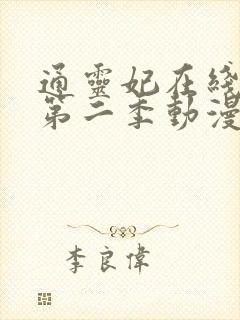 通靈妃在綫
第二季動漫
李良偉